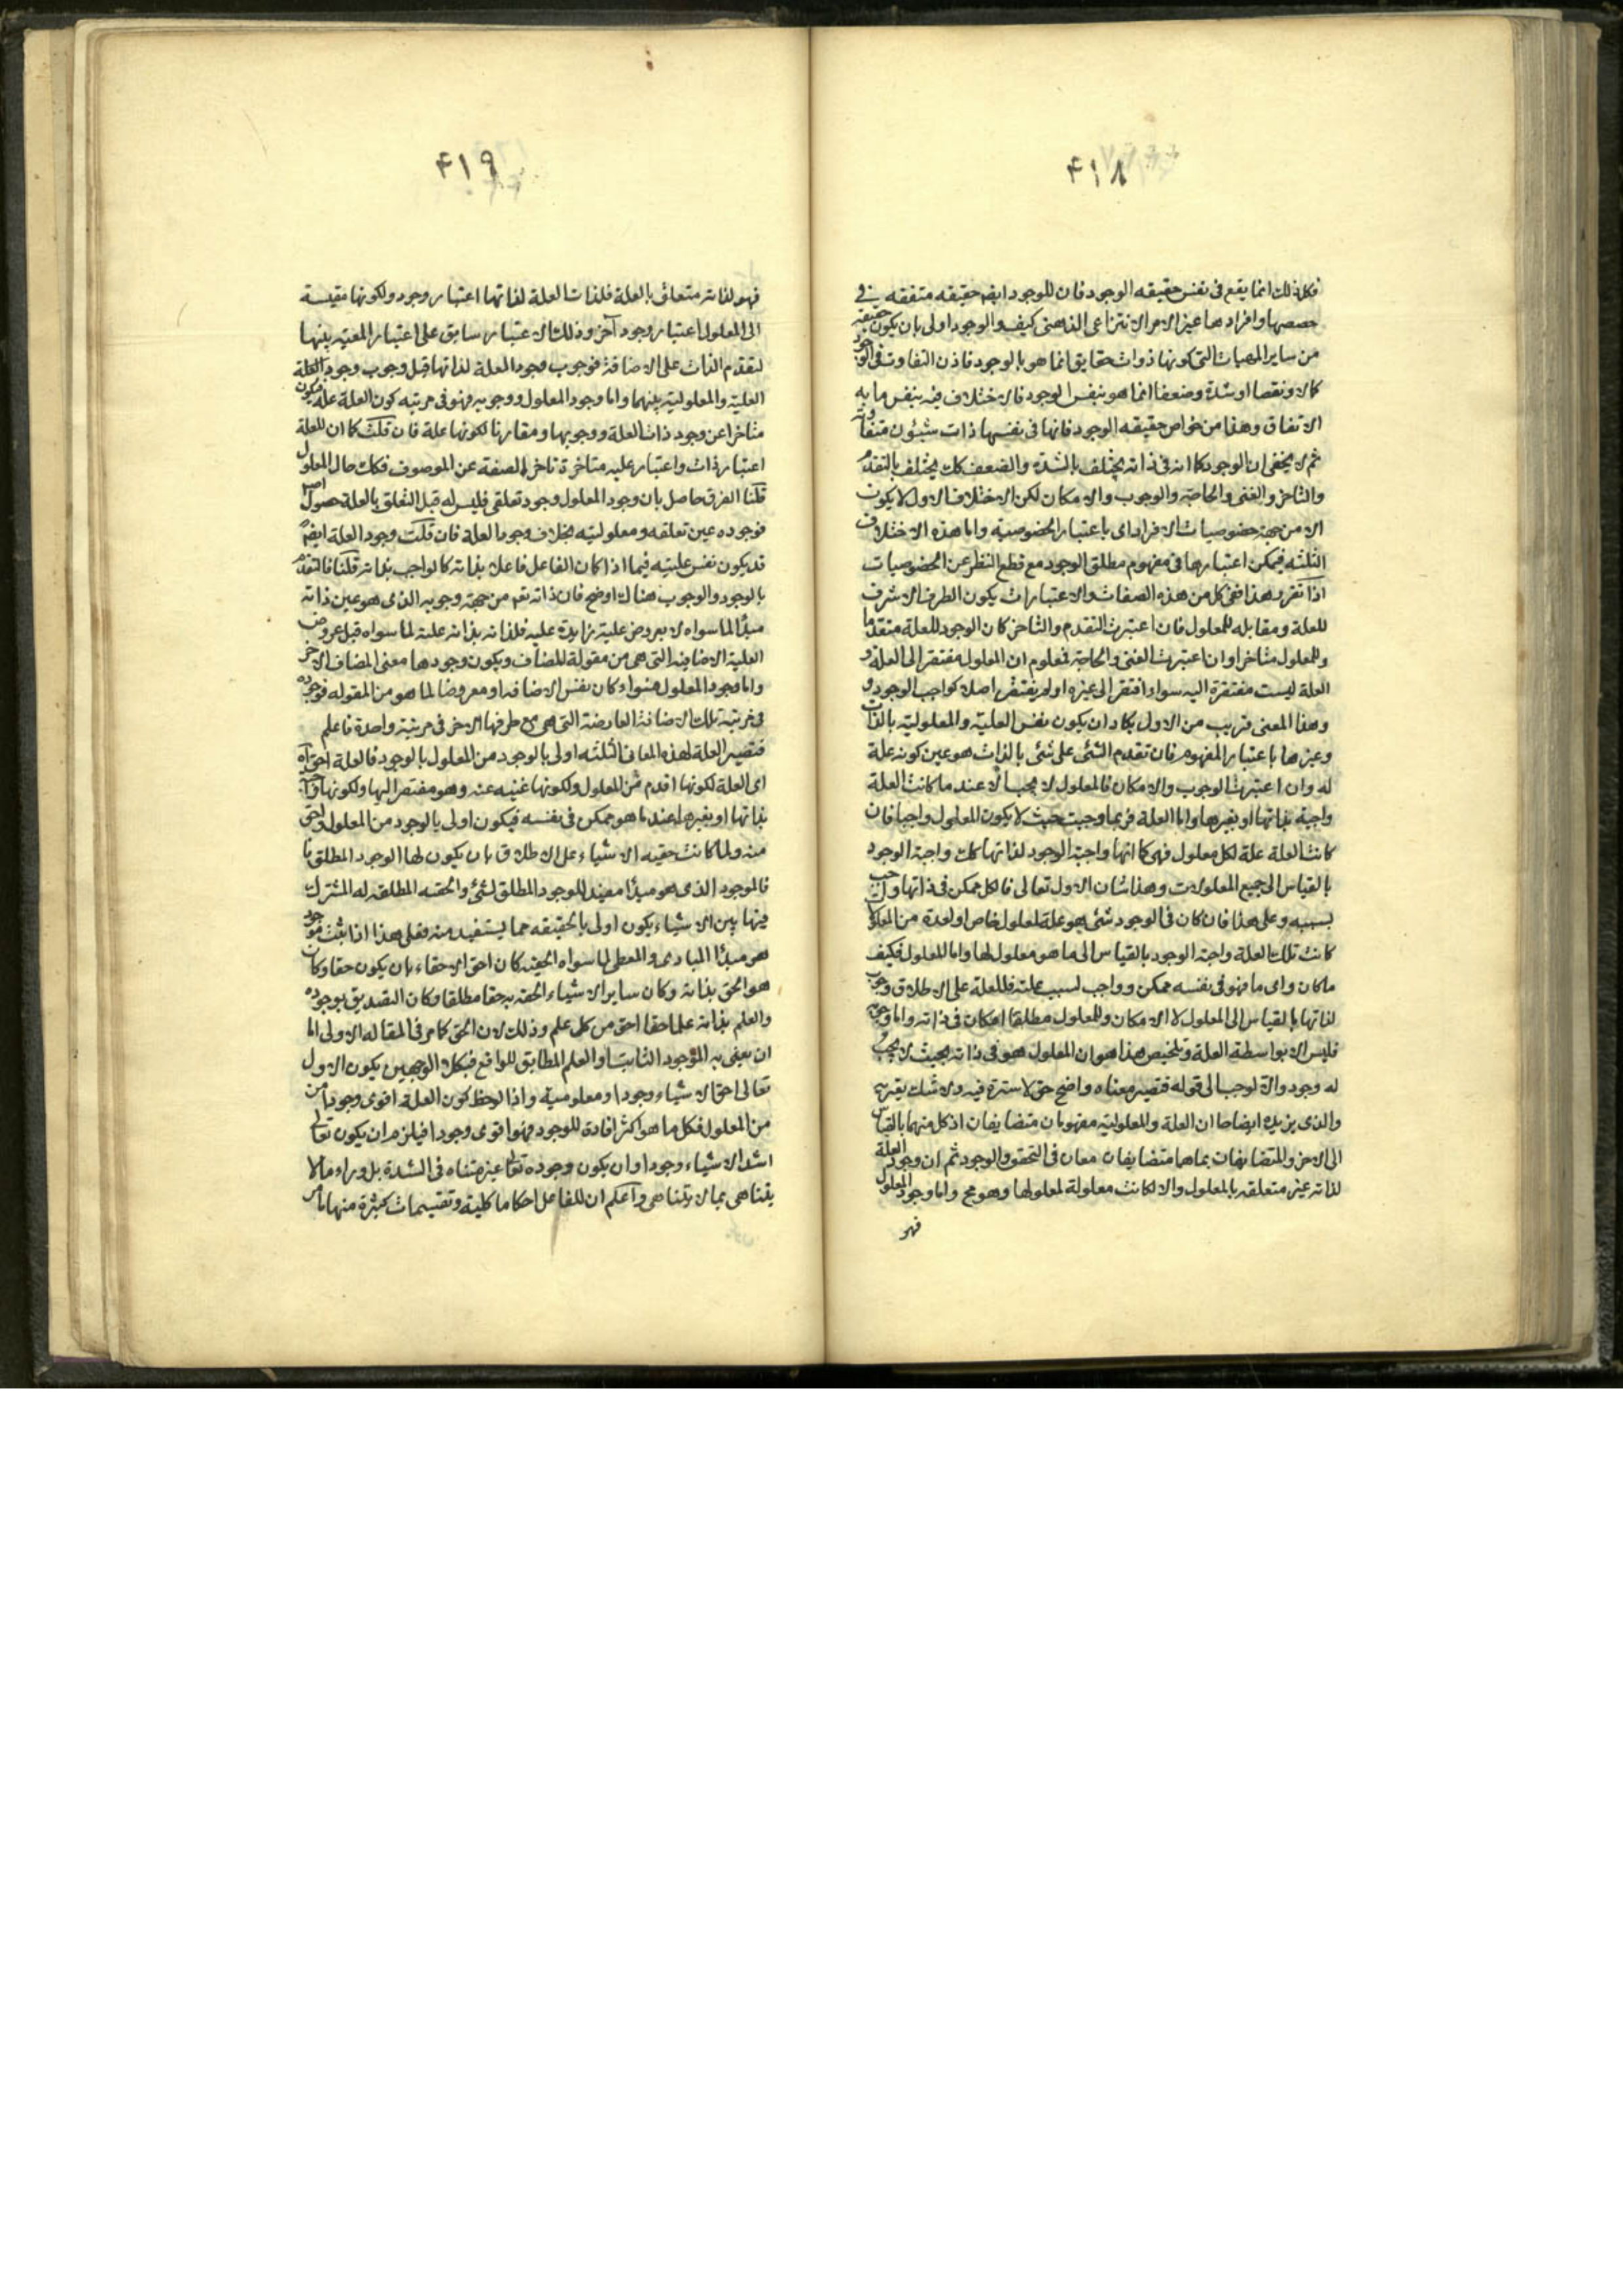 ۴۱۸
فكل ذلك انما يقع فى نفس حقيقه الوجود فان للوجود ايضا حقيقه متفقه فى
حصصها وافرادها غير الامر الانتزاعى الذهنى كيف والوجود اولى بان يكون حقيقة
من ساير المهيات التى كونها ذوات حقايق انما هو بالوجود فاذن التفاوت فى الوجود
كمالا ونقصا او شدة وضعفا انما هو بنفس الوجود فالاختلاف فيه بنفس ما به
الاتفاق وهذا من خواص حقيقه الوجود فانها فى نفسها ذات شئون متفاوته
ثم لا يخفى ان الوجود كما انه فى ذاته يختلف بالشدة والضعف كك يختلف بالتقدم
والتاخر والغنى والحاجة والوجوب والامكان لكن الاختلاف الاول لا يكون
الا من جهة خصوصيات الافراد اى باعتبار الخصوصية واما هذه الاختلافات
الثلثه فيمكن اعتبارها فى مفهوم مطلق الوجود مع قطع النظر عن الخصوصيات
اذا تقرر هذا ففى كل من هذه الصفات والاعتبارات يكون الطرف الاشرف
للعلة ومقابله للمعلول فان اعتبرت التقدم والتاخر كان الوجود للعلة متقدما
وللمعلول متاخرا وان اعتبرت الغنى والحاجة فمعلوم ان المعلول مفتقر الى العلة و
العلة ليست مفتقرة اليه سواء افتقر الى غيره او لم يفتقر اصلا كواجب الوجود و
وهذا المعنى قريب من الاول يكاد ان يكون نفس العلية والمعلولية بالذات
وغيرها باعتبار المفهوم فان تقدم الشئ على شئ بالذات هو عين كونه علة
له وان اعتبرت الوجوب والامكان فالمعلول لا يجب الا عند ما كانت العلة
واجبة بذاتها او بغيرها واما العلة فربما وجبت حيث لا يكون المعلول واجبا فان
كانت العلة علة لكل معلول فهى كما انها واجبة الوجود لذاتها كك واجبة الوجود
بالقياس الى جميع المعلولات وهذا شان الاول تعالى فالكل ممكن فى ذاتها واجب
بسببه وعلى هذا فان كان فى الوجود شئ هو علة لمعلول خاص او لعدة من المعلولات
كانت تلك العلة واجبة الوجود بالقياس الى ما هو معلول لها واما المعلول فكيف
ما كان واى ما فهو فى نفسه ممكن وواجب لسبب علته فللعلة على الاطلاق وجوب
لذاتها بالقياس الى المعلول لا الامكان وللمعلول مطلقا امكان فى ذاته واما وجوبه
فليس الا بواسطة العلة وتلخيص هذا هو ان المعلول هو فى ذاته بحيث لا يجب
له وجود والا لوجب الى قوله فتصير معناه واضح حق لا سترة فيه ولا شك يعتريه
والذى يزيده ايضاحا ان العلة والمعلولية مفهومان متضايفان اذ كل منهما بالقياس
الى الاخر والمتضايفان بما هما متضايفان معان فى التحقق والوجود ثم ان وجود العلة
لذاته غير متعلقه بالمعلول والا لكانت معلولة لمعلولها وهو مح واما وجود المعلول
فهو
۴۱۹
فهو لذاته متعلق بالعلة فلذات العلة لذاتها اعتبار وجود ولكونها مقيسة
الى المعلول اعتبار وجود آخر وذلك الاعتبار سابق على اعتبار المعية بينهما
لتقدم الذات على الاضافة فوجوب وجود العلة لذاتها قبل وجوب وجود العلة
العلية والمعلولية بينهما واما وجود المعلول ووجوبه فهو فى مرتبه كون العلة علة فيكون
متاخرا عن وجود ذات العلة ووجوبها ومقارنا لكونها علة فان قلت كما ان للعلة
اعتبار ذات واعتبار علية متاخرة تاخر الصفة عن الموصوف فكك حال المعلول
قلنا الفرق حاصل بان وجود المعلول وجود تعلقى فليس له قبل التعلق بالعلة حصول اصلا
فوجوده عين تعلقه ومعلوليته بخلاف وجود العلة فان قلت وجود العلة ايضا
قد يكون نفس عليته فيما اذا كان الفاعل فاعلا بذاته كالواجب بذاته قلنا فالتقدم
بالوجود والوجوب هناك اوضح فان ذاته تعم من جهة وجوبه الذى هو عين ذاته
مبدأ لما سواه لا بعروض علية زايدة عليه فلذاته بذاته علية لما سواه قبل عروض
العلية الاضافية التى هى من مقولة المضاف ويكون وجودها معنى المضاف الاخر
واما وجود المعلول فسواء كان نفس الاضافه او معروضا لما هو من المقوله فوجوده
فى مرتبة تلك الاضافة العارضة التى هى مع طرفها الاخر فى مرتبة واحدة فاعلم
فتصير العلة لهذه المعانى الثلثه اولى بالوجود من المعلول بالوجود فالعلة احق اه
اى العلة لكونها اقدم من المعلول ولكونها غنيه عنه وهو مفتقر اليها ولكونها واجبة
بذاتها او بغيرها عند ما هو ممكن فى نفسه فيكون اولى بالوجود من المعلول واحق
منه ولما كانت حقيه الاشياء على الاطلاق بان يكون لها الوجود المطلق
فالموجود الذى هو مبدأ مفيد للوجود المطلق لشئ والحقيه المطلقه له المشترك
فيها بين الاشياء يكون اولى بالحقيقه مما يستفيد منه فعلى هذا اذا ثبت موجود
هو مبدأ المبادى والمعطى لما سواه الحقيه كان احق الاحقاء بان يكون حقا وكان
هو الحق بذاته وكان ساير الاشياء الحقه به حقا مطلقا وكان التصديق بوجوده
والعلم بذاته علما حقا احق من كل علم وذلك لان الحق كما مر فى المقاله الاولى اما
ان يعنى به الموجود الثابت او العلم المطابق للواقع فبكلا الوجهين يكون الاول
تعالى احق الاشياء وجودا ومعلومية واذا لوحظ كون العلة اقوى وجودا من
من المعلول فكل ما هو اكثر افادة للوجود فهو اقوى وجودا فيلزم ان يكون تعالى
اشد الاشياء وجودا وان يكون وجوده تعالى غير متناه فى الشدة بل وراء ما لا
يتناهى بما لا يتناهى واعلم ان للفاعل احكاما كلية وتقسيمات كثيرة منها ما